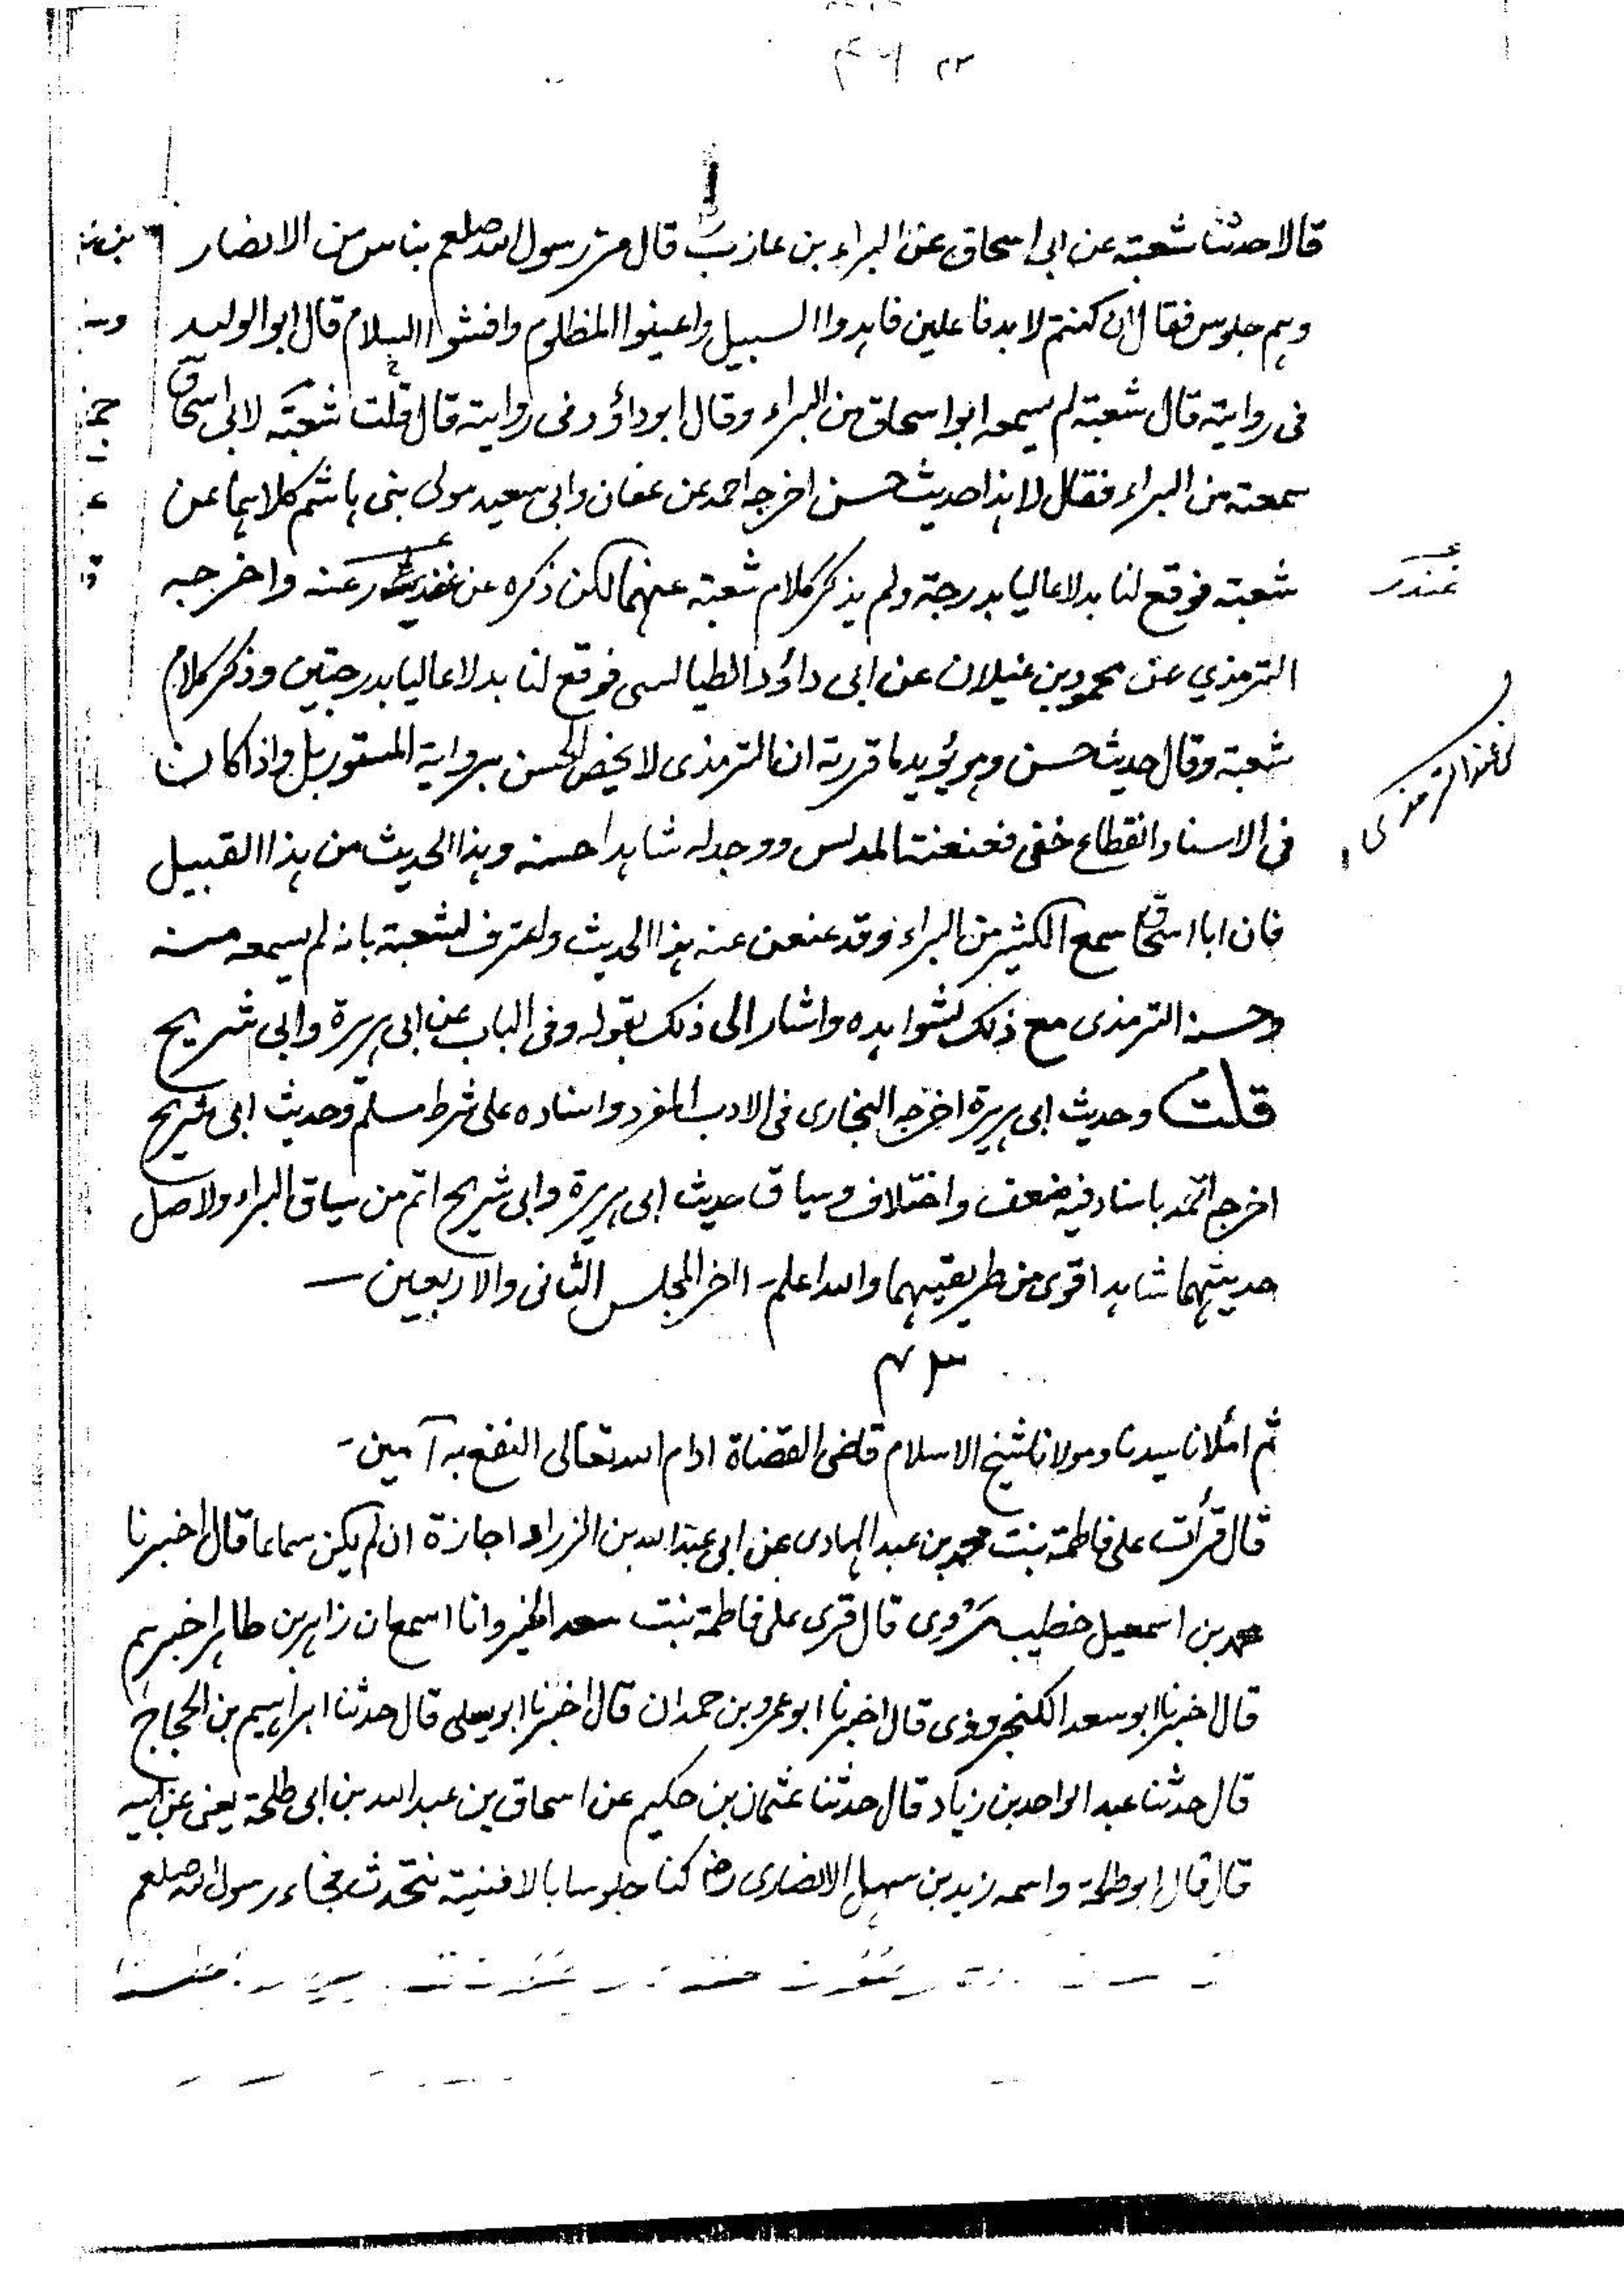 قالا حدثنا شعبة عن ابى اسحاق عن البراء بن عازب قال مر رسول الله صلعم بناس من الانصار
وہم جلوس فقال ان كنتم لا بد فاعلين فاہدوا السبيل واعينوا المظلوم وافشوا السلام قال ابو الوليد
فى روايته قال شعبة لم يسمعه ابو اسحاق من البراء وقال ابو داؤد فى روايته قال قلت شعبة لابى اسحاق
سمعته من البراء فقال لا ہذا حديث حسن اخرجه احمد عن عفان وابى سعيد مولى بنى ہاشم كلاہما عن
شعبة فوقع لنا بدلا عاليا بدرجة ولم يذكر كلام شعبة عنهما لكن ذكره عن عنه واخرجه
غندر
الترمذي عن محمود بن غيلان عن ابى داؤد الطيالسى فوقع لنا بدلا عاليا بدرجتين وذكر كلام
شعبة وقال حديث حسن وہو يؤيد ما قررته ان الترمذى لا يخص الحسن برواية المستور بل واذا كان
فى الاسناد انقطاع خفى فعنعنة المدلس ووجد له شاہدا حسنه وہذا الحديث من ہذا القبيل
فان ابا اسحاق سمع الكثير من البراء وقد عنعن عنه ہذا الحديث واعترف لشعبة بانه لم يسمعه منه
وحسنه الترمذى مع ذلك لشواہده واشار الى ذلك بقوله وفى الباب عن ابى ہريرة وابى شريح
قلت وحديث ابى ہريرة اخرجه البخارى فى الادب المفرد واسناده على شرط مسلم وحديث ابى شريح
اخرج احمد باسناد فيه ضعف واختلاف وسياق حديث ابى ہريرة وابى شريح اتم من سياق البراء ولاصل
حديثهما شاہد اقوى من طريقيهما والله اعلم - اخر المجلس الثانى والاربعين —
۴۳
ثم املانا سيدنا ومولانا شيخ الاسلام قاضى القضاة ادام الله تعالى النفع به آمين -
قال قرأت على فاطمة بنت محمد بن عبد الہادى عن ابى عبد الله بن الزراد اجازة ان لم يكن سماعا قال اخبرنا
محمد بن اسمعيل خطيب مردوى قال قرى على فاطمة بنت سعد الخير وانا اسمع ان زاہر بن طاہر اخبرہم
قال اخبرنا ابو سعد الكنجروذى قال اخبرنا ابو عمرو بن حمدان قال اخبرنا ابو يعلى قال حدثنا ابراہيم بن الحجاج
قال حدثنا عبد الواحد بن زياد قال حدثنا عثمان بن حكيم عن اسحاق بن عبد الله بن ابى طلحة يعنى عن ابيه
قال قال ابو طلحة واسمه زيد بن سہل الانصارى رض كنا جلوسا بالافنية نتحدث فجاء رسول الله صلعم